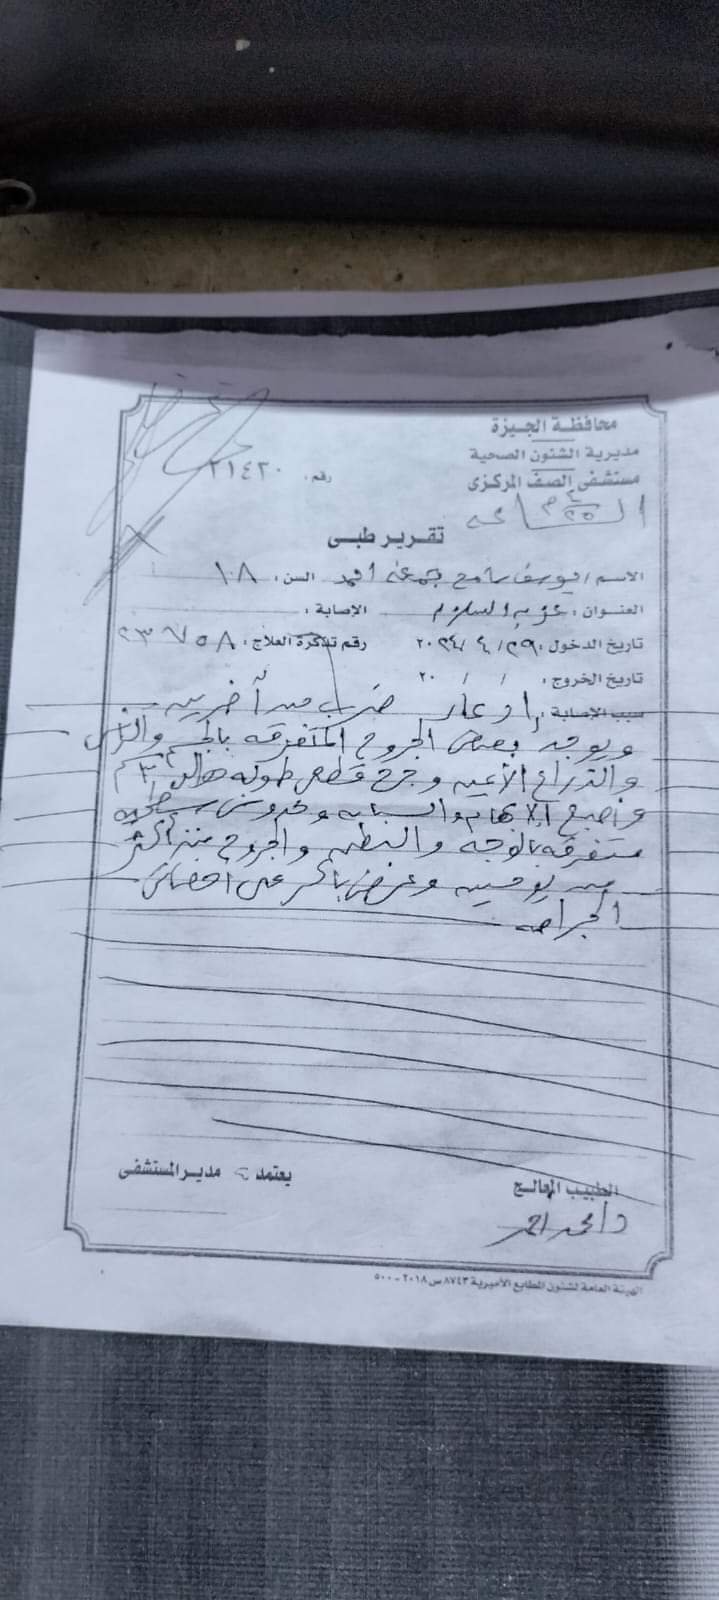 محافظة الجيزة
مديرية الشئون الصحية
مستشفى الصف المركزى
رقم: ٢١٤٢٠
تقرير طبى
الاسم / يوسف سامح جمعه احمد السن: ١٨
العنوان: عرب السلام الإصابة:
تاريخ الدخول: ٢٩ / ٤ / ٢٠٢٤ رقم تذكرة العلاج: ٢٣٧٥٨
تاريخ الخروج: / / ٢٠
سبب الإصابة: إدعاء ضرب من آخرين
ويوجد بعض الجروح المتفرقه بالجسم والرأس
والذراع الأيمن وجرح قطعى طوله حوالى ٣ سم
وأصبع الإبهام والسبابه وخدوش سطحيه
متفرقه بالوجه والبطن والجروح منذ أكثر
من يومين وعرض باكر على اخصائى
الجراحه
الطبيب المعالج
يعتمد مدير المستشفى
د/ محمد احمد
الهيئة العامة لشئون المطابع الأميرية ٨٧٤٣ س ٢٠١٨ - ٥٠٠